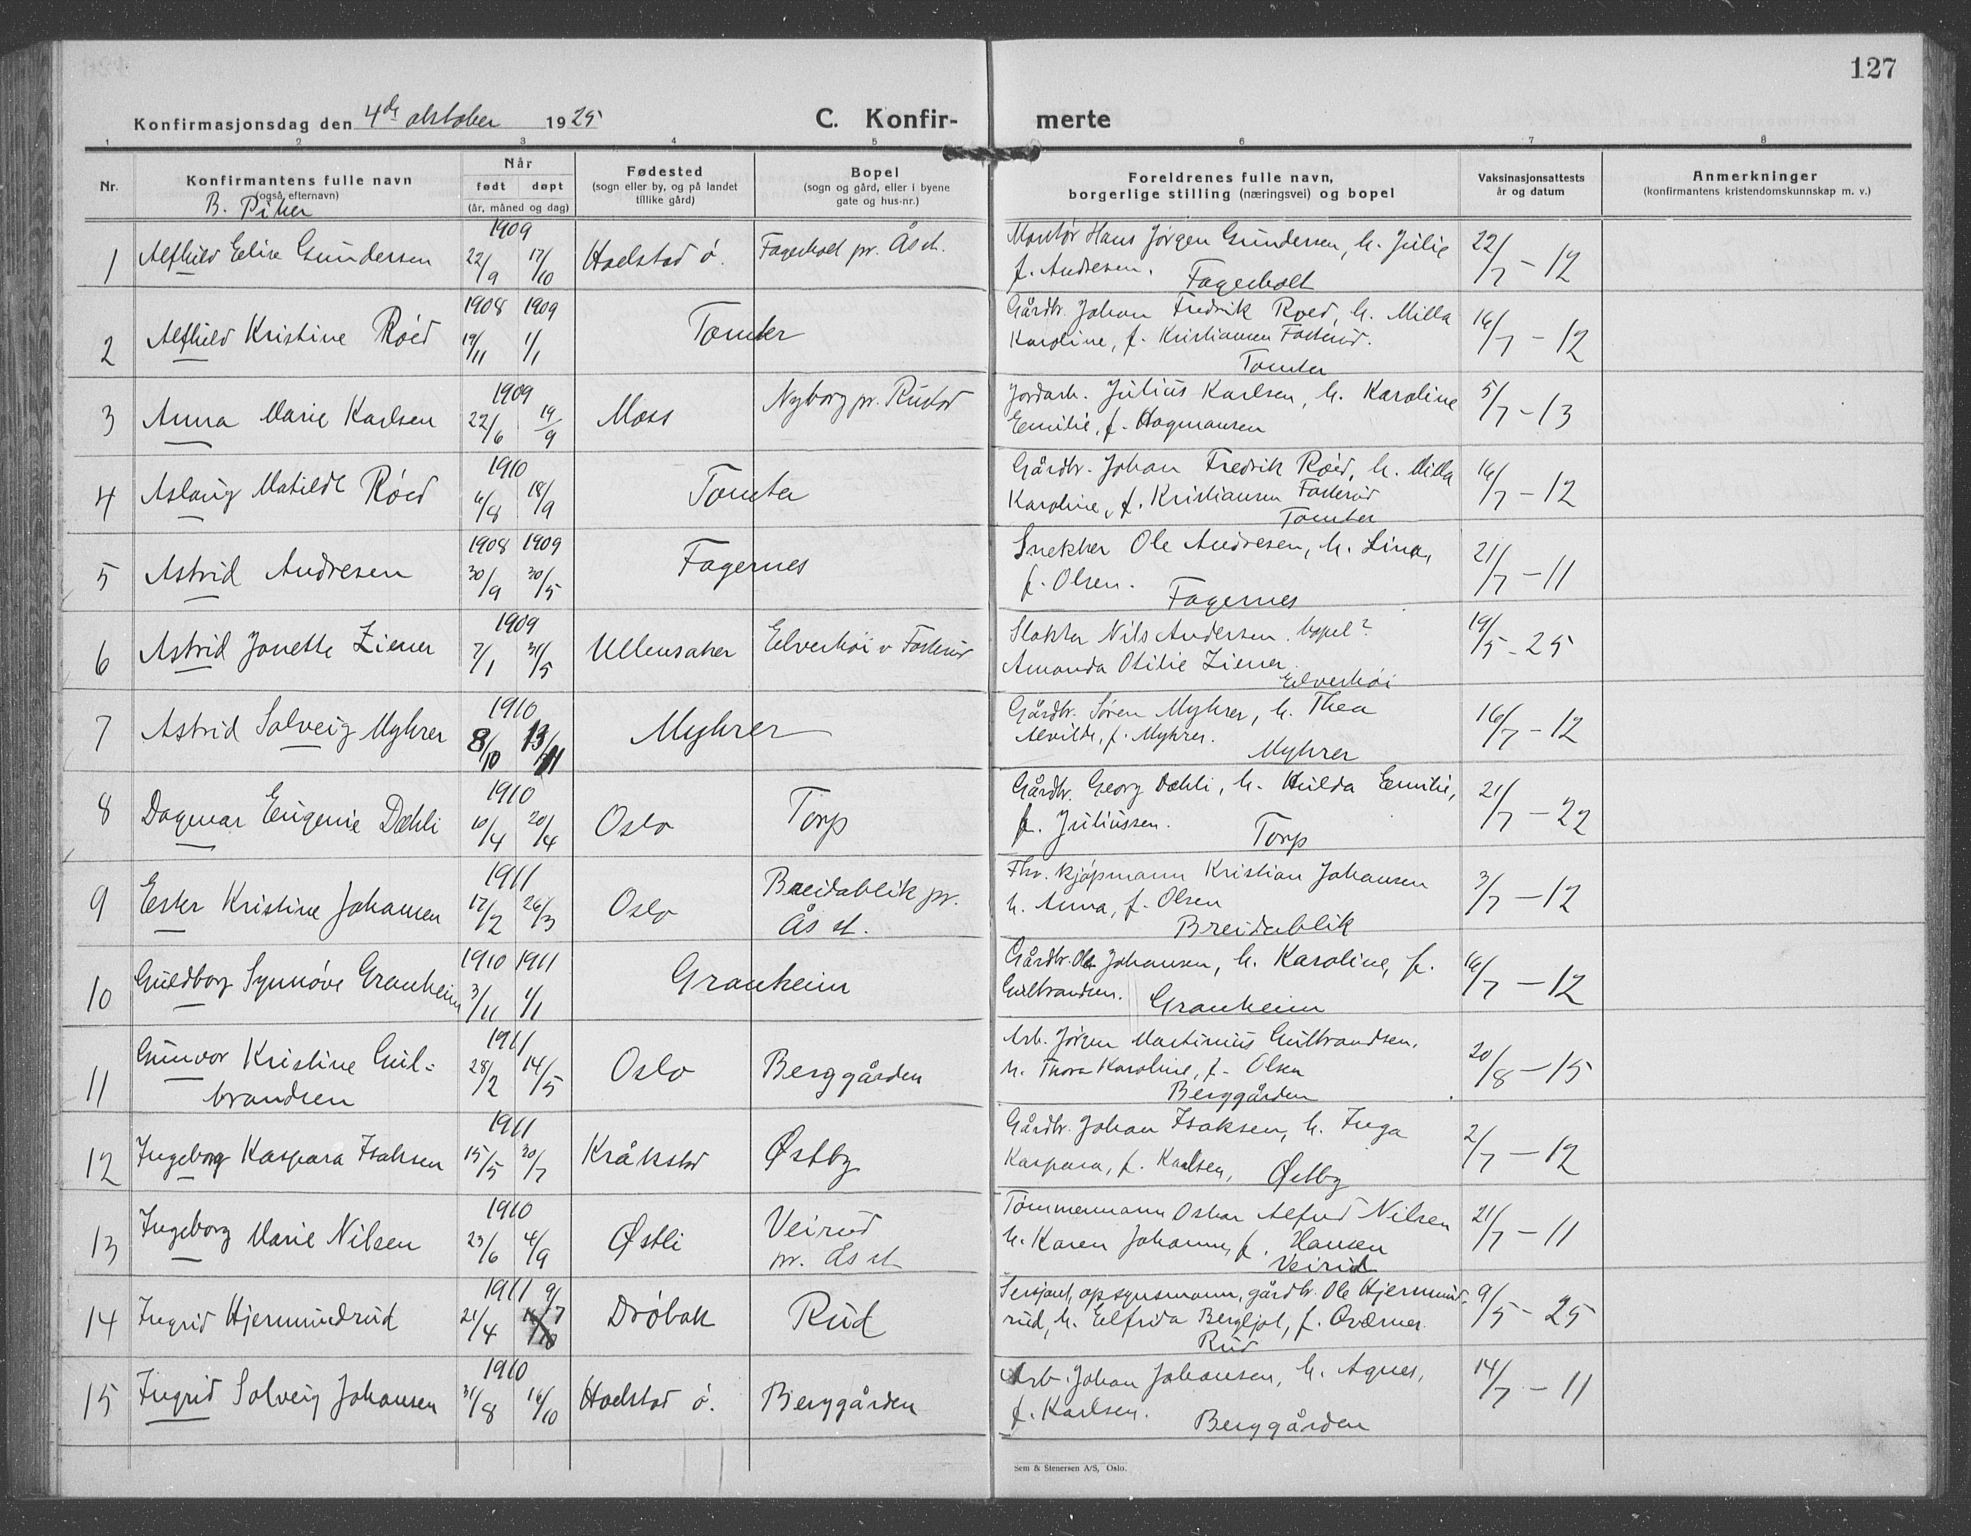 127
Konfirmasjonsdag den 4de oktober 1925
C. Konfir- merte
1 2 3 4 5 6 7 8
Nr.
Konfirmantens fulle navn
(også efternavn)
B. Piker
Når
født døpt
(år, måned og dag)
Fødested
(sogn eller by, og på landet
tillike gård)
Bopel
(sogn og gård, eller i byene
gate og hus-nr.)
Foreldrenes fulle navn,
borgerlige stilling (næringsvei) og bopel
Vaksinasjonsattests
år og datum
Anmerkninger
(konfirmantens kristendomskunnskap m. v.)
1909
1 Alfhild Elise Gundersen 22/9 17/10 Holstad ø. Fagerholt pr. Ås st.
Montør Hans Jørgen Gundersen, h. Julie
f. Andresen. Fagerholt
22/7 - 12
1908 1909
2 Alfhild Kristine Røed 19/11 1/1 Tomter
Gårdbr. Johan Fredrik Roed, h. Milla
Karoline, f. Kristiansen Fosterud.
Tomter
16/7 - 12
1909
3 Anna Marie Karlsen 22/6 19/9 Moss Nyborg pr. Rustad
Jordarb. Julius Karlsen, h. Karoline
Emilie, f. Hagmansen
5/7 - 13
1910
4 Aslaug Matilde Røed 6/8 18/9 Tomter
Gårdbr. Johan Fredrik Røed, h. Milla
Karoline, f. Kristiansen Fosterud
Tomter
16/7 - 12
1908 1909
5 Astrid Andresen 30/9 30/5 Fagernes
Snekker Ole Andresen, h. Lina,
f. Olsen.
Fagernes
21/7 - 11
1909
6 Astrid Jonette Ziener 7/1 31/5 Ullensaker Elverhøi v Fosterud
Slakter Nils Andersen. bopel?
Amanda Otilie Ziener
Elverhøi
19/5 - 25
1910
7 Astrid Solveig Myhrer 8/10 13/11 Myhrer
Gårdbr. Søren Myhrer, h. Thea
Alvilde, f. Myhrer.
Myhrer
16/7 - 12
1910
8 Dagmar Eugenie Dæhli 10/4 20/4 Oslo Torp
Gårdbr. Georg Dæhli, h. Hulda Emilie,
f. Juliussen.
Torp
21/7 - 22
1911
9 Ester Kristine Johansen 17/2 26/3 Oslo Breidablik pr.
Ås st.
Fhv. kjøpmann Kristian Johansen
h. Anna, f. Olsen
Breidablik
3/7 - 12
1910 1911
10 Guldborg Synnøve Granheim 3/11 1/1 Granheim
Gårdbr. Ole Johansen, h. Karoline, f.
Gulbrandsen. Granheim
16/7 - 12
1911
11 Gunvor Kristine Gul-
brandsen
28/2 14/5 Oslo Berggården
Arb. Jørgen Martinius Gulbrandsen,
h. Thora Karoline, f. Olsen
Berggården
20/8 - 15
1911
12 Ingeborg Kaspara Isaksen 15/5 30/7 Kråkstad Østby
Gårdbr. Johan Isaksen, h. Inga
Kaspara, f. Karlsen, Østby
2/7 - 12
1910
13 Ingeborg Marie Nilsen 23/6 4/9 Østli Veirud
pr. Ås st
Tømmermann Oskar Alfred Nilsen
h. Karen Johanne, f. Hansen
Veirud
21/7 - 11
1911
14 Ingrid Hjermundrud 21/4 9/7 Drøbak Rud
Sersjant, opsynsmann, gårdbr. Ole Hjermund-
rud, h. Elfrida Bergljot, f. Oværnes
Rud
9/5 - 25
1910
15 Ingrid Solveig Johansen 31/8 16/10 Holstad ø. Berggården
Arb. Johan Johansen, h. Agnes,
f. Karlsen.
Berggården
14/7 - 11
Sem & Stenersen A/S, Oslo.